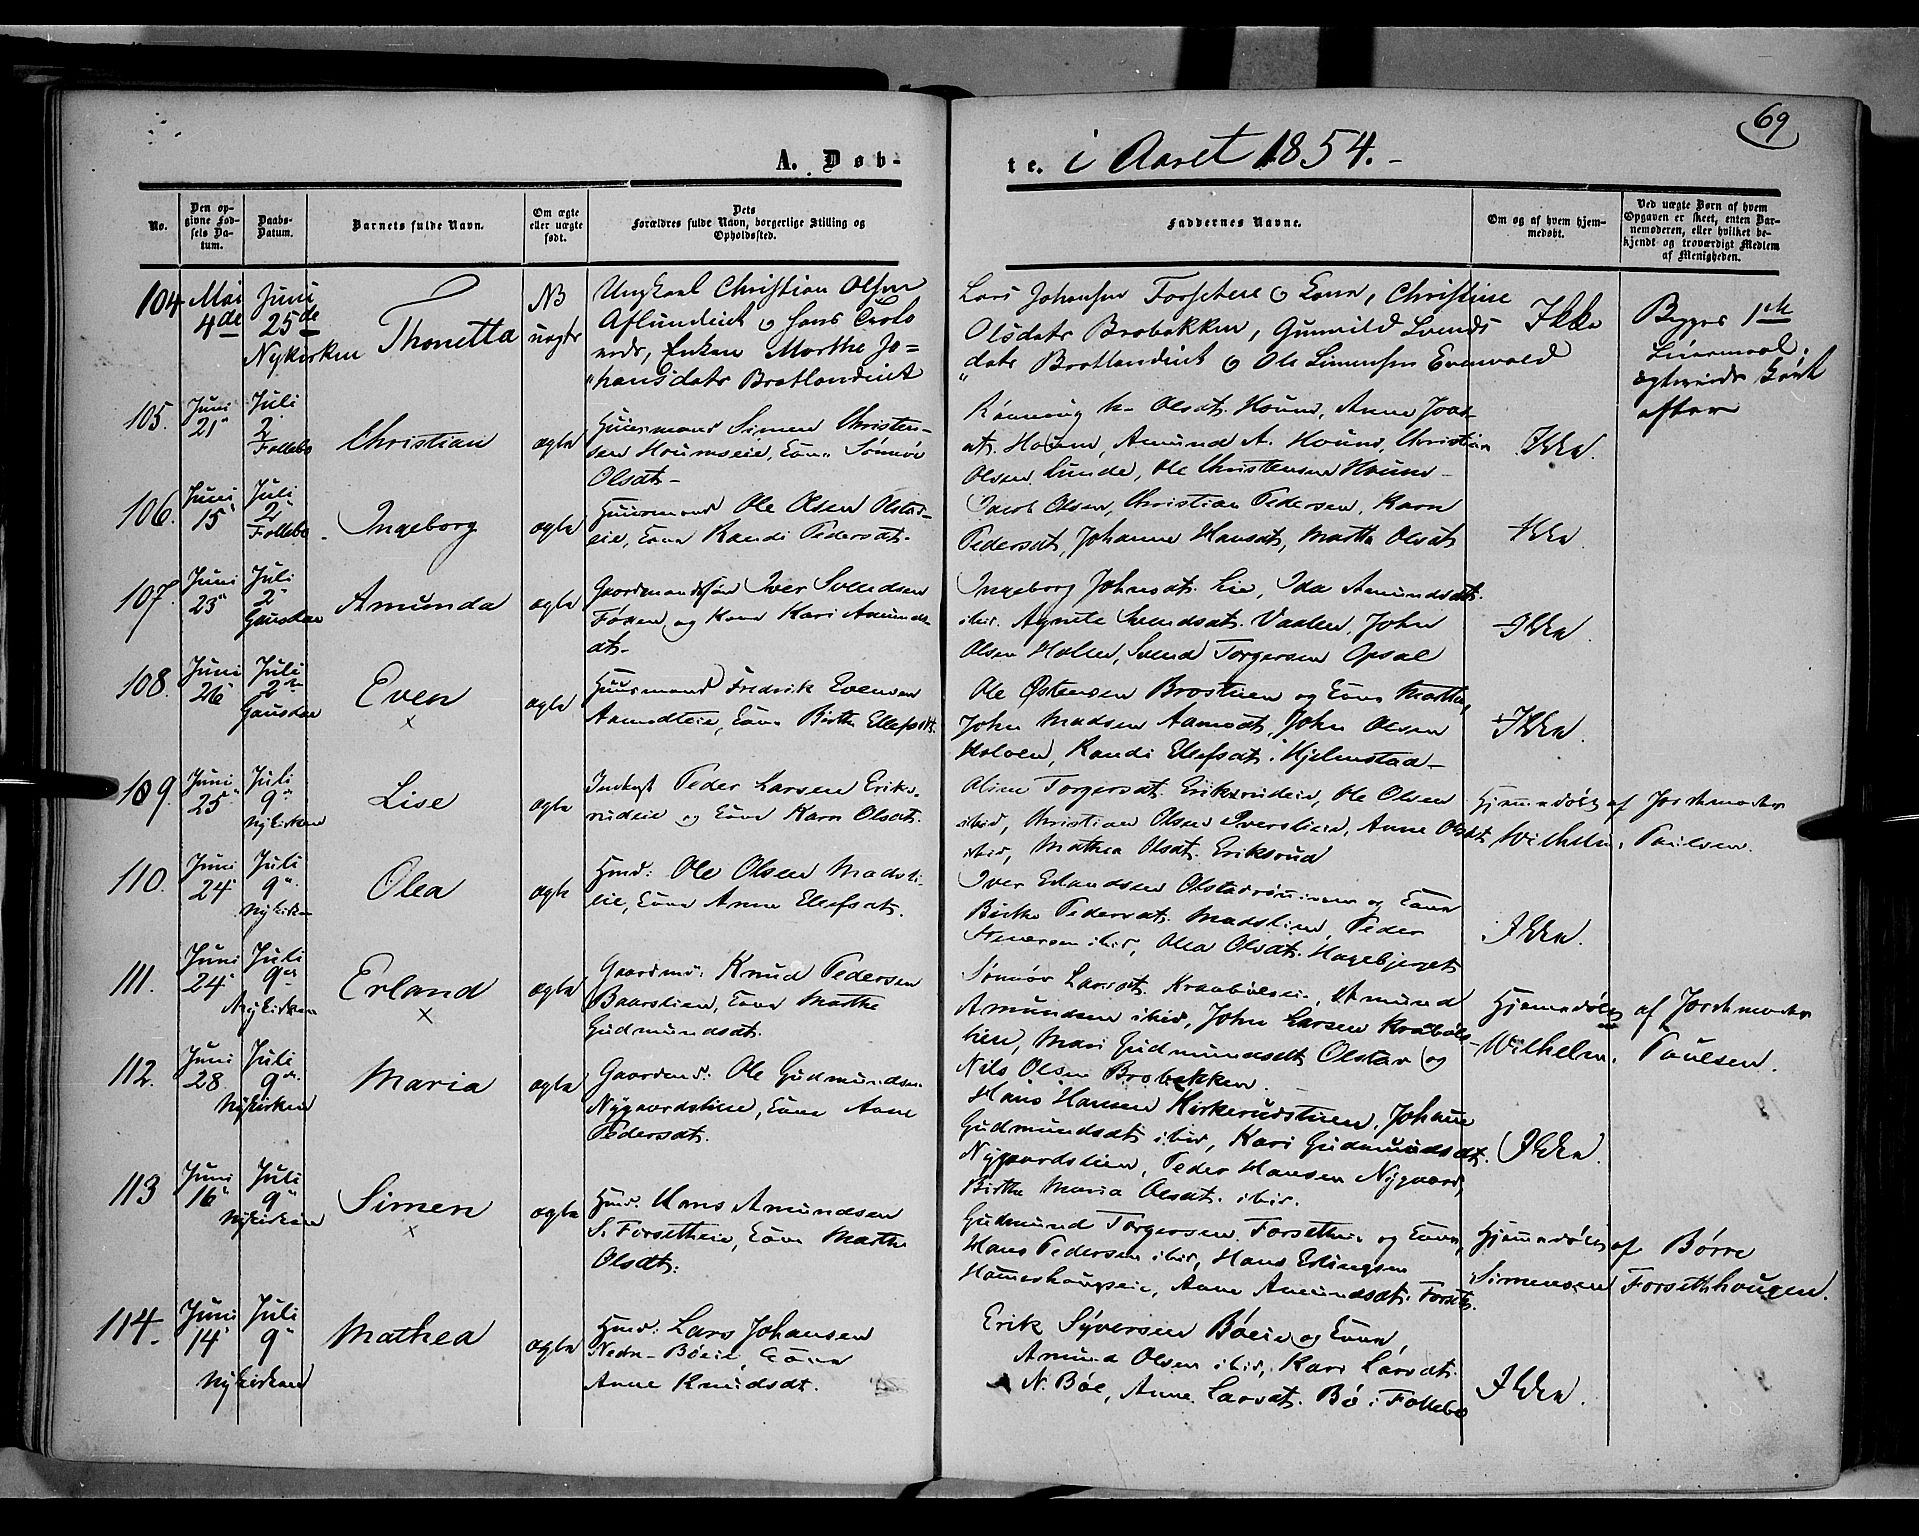 69
A. Døb-
te. i Aaret 1854.-
No.
Den op-
givne Fød-
sels Da-
tum.
Daabs-
Datum.
Barnets fulde Navn.
Om ægte
eller uægte
født.
Dets
Forældres fulde Navn, borgerlige Stilling og
Opholdssted.
Faddernes Navne.
Om og af hvem hjem-
medøbt.
Ved uægte Børn af hvem
Opgaven er skeet, enten Bar-
nemoderen, eller hvilket be-
kjendt og troværdigt Medlem
af Menigheden.
104
Mai
4de
Juni
25de
Nykirken
Thonetta
NB
uægte
Ungkarl Christian Olsen
Aflundeiet og
Enken Marthe Jo=
"hansdatr Bratlandeiet
Lars Johansen Forsetere og Kone, Christine
Olsdatr Brobakken, Gunnild Svends
"datr Bratlandeiet og Ole Simensen Evenvold
Ikke
Begges 1ste
Leiermaal.
105.
Juni
21"
Juli
2"
Follebo
Christian
ægte
Huusmand Simen Christen-
sen Houmseie, Kone Sønnøv
Olsdt-
Rønnoug Olsdt. Houm, Anne
Houm, Amund A. Houm, Christian
Olsen Lunde, Ole Christensen Houm-
Ikke.
106.
Juni
15"
Juli
2"
Follebo
Ingeborg
ægte
Huusmand Ole Olsen Olstad-
eie, Kone Randi Pedersdt.
Jacob Olsen, Christian Pedersen, Karn
Pedersdt, Johanne Hansdt, Marthe Olsdt
Ikke.
107.
Juni
23"
Juli
2"
Gausdal
Amunda
ægte
Gaardmandssøn Iver Svendsen
og Kone Kari Amunds-
dt.-
Ingeborg Johnsdt. Lie, Ida Amundsdt.
ibid. Agnete Svendsdt. Vaalen, John
Olsen Holen, Svend Torgersen Opsal
Ikke.
108.
Juni
26"
Juli
2"
Gausdal
Even
x
ægte
Huusmand Fredrik Evensen
Aamodteie, Kone Birthe Ellefsdt.
Ole Østensen Brostuen og Kone Marthe,
John Madsen Aamodt, John Olsen
Holoen, Randi Ellefsdt. Hjelmstad-
Ikke.
109.
Juni
25"
Juli
9"
Nykirken
Lise
ægte
Inderst Peder Larsen Eriks-
rudeie og Kone Karn Olsdt.
Oline Torgersdt. Eriksrudeie, Ole Olsen
ibid, Christian Olsen Iversliein, Anne Olsdt
ibid, Mathea Olsdt. Eriksrud
Hjemmedøbt af Jordmoder
Wilhelm. Poulsen.
110.
Juni
24"
Juli
9"
Nykirken
Olea
ægte
Hmd: Ole Olsen Madsli-
eie, Kone Anne Ellefsdt.
Iver Erlandsen Olstad og Kone
Birthe Pedersdt. Madslien, Peder
Steneresen ibid, Olea Olsdt. Hagebjerget
Ikke.
111.
Juni
24"
Juli
9"
Nykirken
Erland
x
ægte
Gaardmd: Knud Pedersen
Baarslien, Kone Marthe
Gudmundsdt.
Sønnøv Larsdt. Kraabølseie, Amund
Amundsen ibid, John Larsen Kraabøls-
lien, Mari Gudmundsdt Olstad og
Nils Olsen Brobakken.
Hjemmedøbt af Jordmoder
Wilhelm. Poulsen.
112.
Juni
28.
Juli
9"
Nykirken
Maria
ægte
Gaardmd: Ole Gudmundsen
Nygaardslien, Kone Anne
Pedersdt.
Hans Hansen Kirkerudstuen, Johanne
Gudmundsdt ibid, Kari Gudmundsdt.
Nygaardslien, Peder Hansen Nygaard,
Birthe Maria Olsdt. ibid.
Ikke.
113
Juni
16"
Juli
9"
Nykirken
Simen
x
ægte
Hmd: Hans Amundsen
S. Forsetheie, Kone Marthe
Olsdt:
Gudmund Torgersen Forsetheie og Kone,
Hans Pedersen ibid, Hans Erlingsen
Hammerhaugseie, Anne Amundsdt. Forseth.
Hjemmedøbt af Børre
Simensen Forsethhougen.
114.
Juni
14"
Juli
9"
Nykirken
Mathea
ægte
Hmd: Lars Johansen
Nedre-Bøeie, Kone
Anne Knudsdt.
Erik Syversen Bøeie og Kone,
Amund Olsen ibid, Kari Larsdt.
N. Bøe, Anne Larsdt. Bø i Follebo
Ikke.